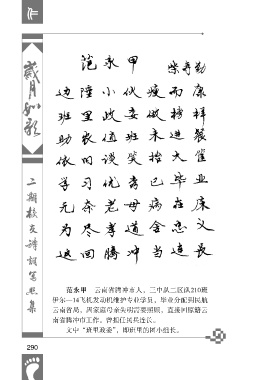 作
岁月如歌
二期校友诗词画照集
范永甲
边陲小伙瘦而康
班里政委做榜样
助农值班未进餐
依旧谈笑抬大筐
学习优秀已毕业
无奈老母病在床
为尽孝道舍恋义
返回腾冲当连长
范永甲 云南省腾冲市人,三中队二区队210班
伊尔—14飞机发动机维护专业学员,毕业分配到民航
云南省局,因家庭母亲失明需要照顾,直接回原籍云
南省腾冲市工作,曾担任民兵连长。
文中“班里政委”,即班里的团小组长。
290